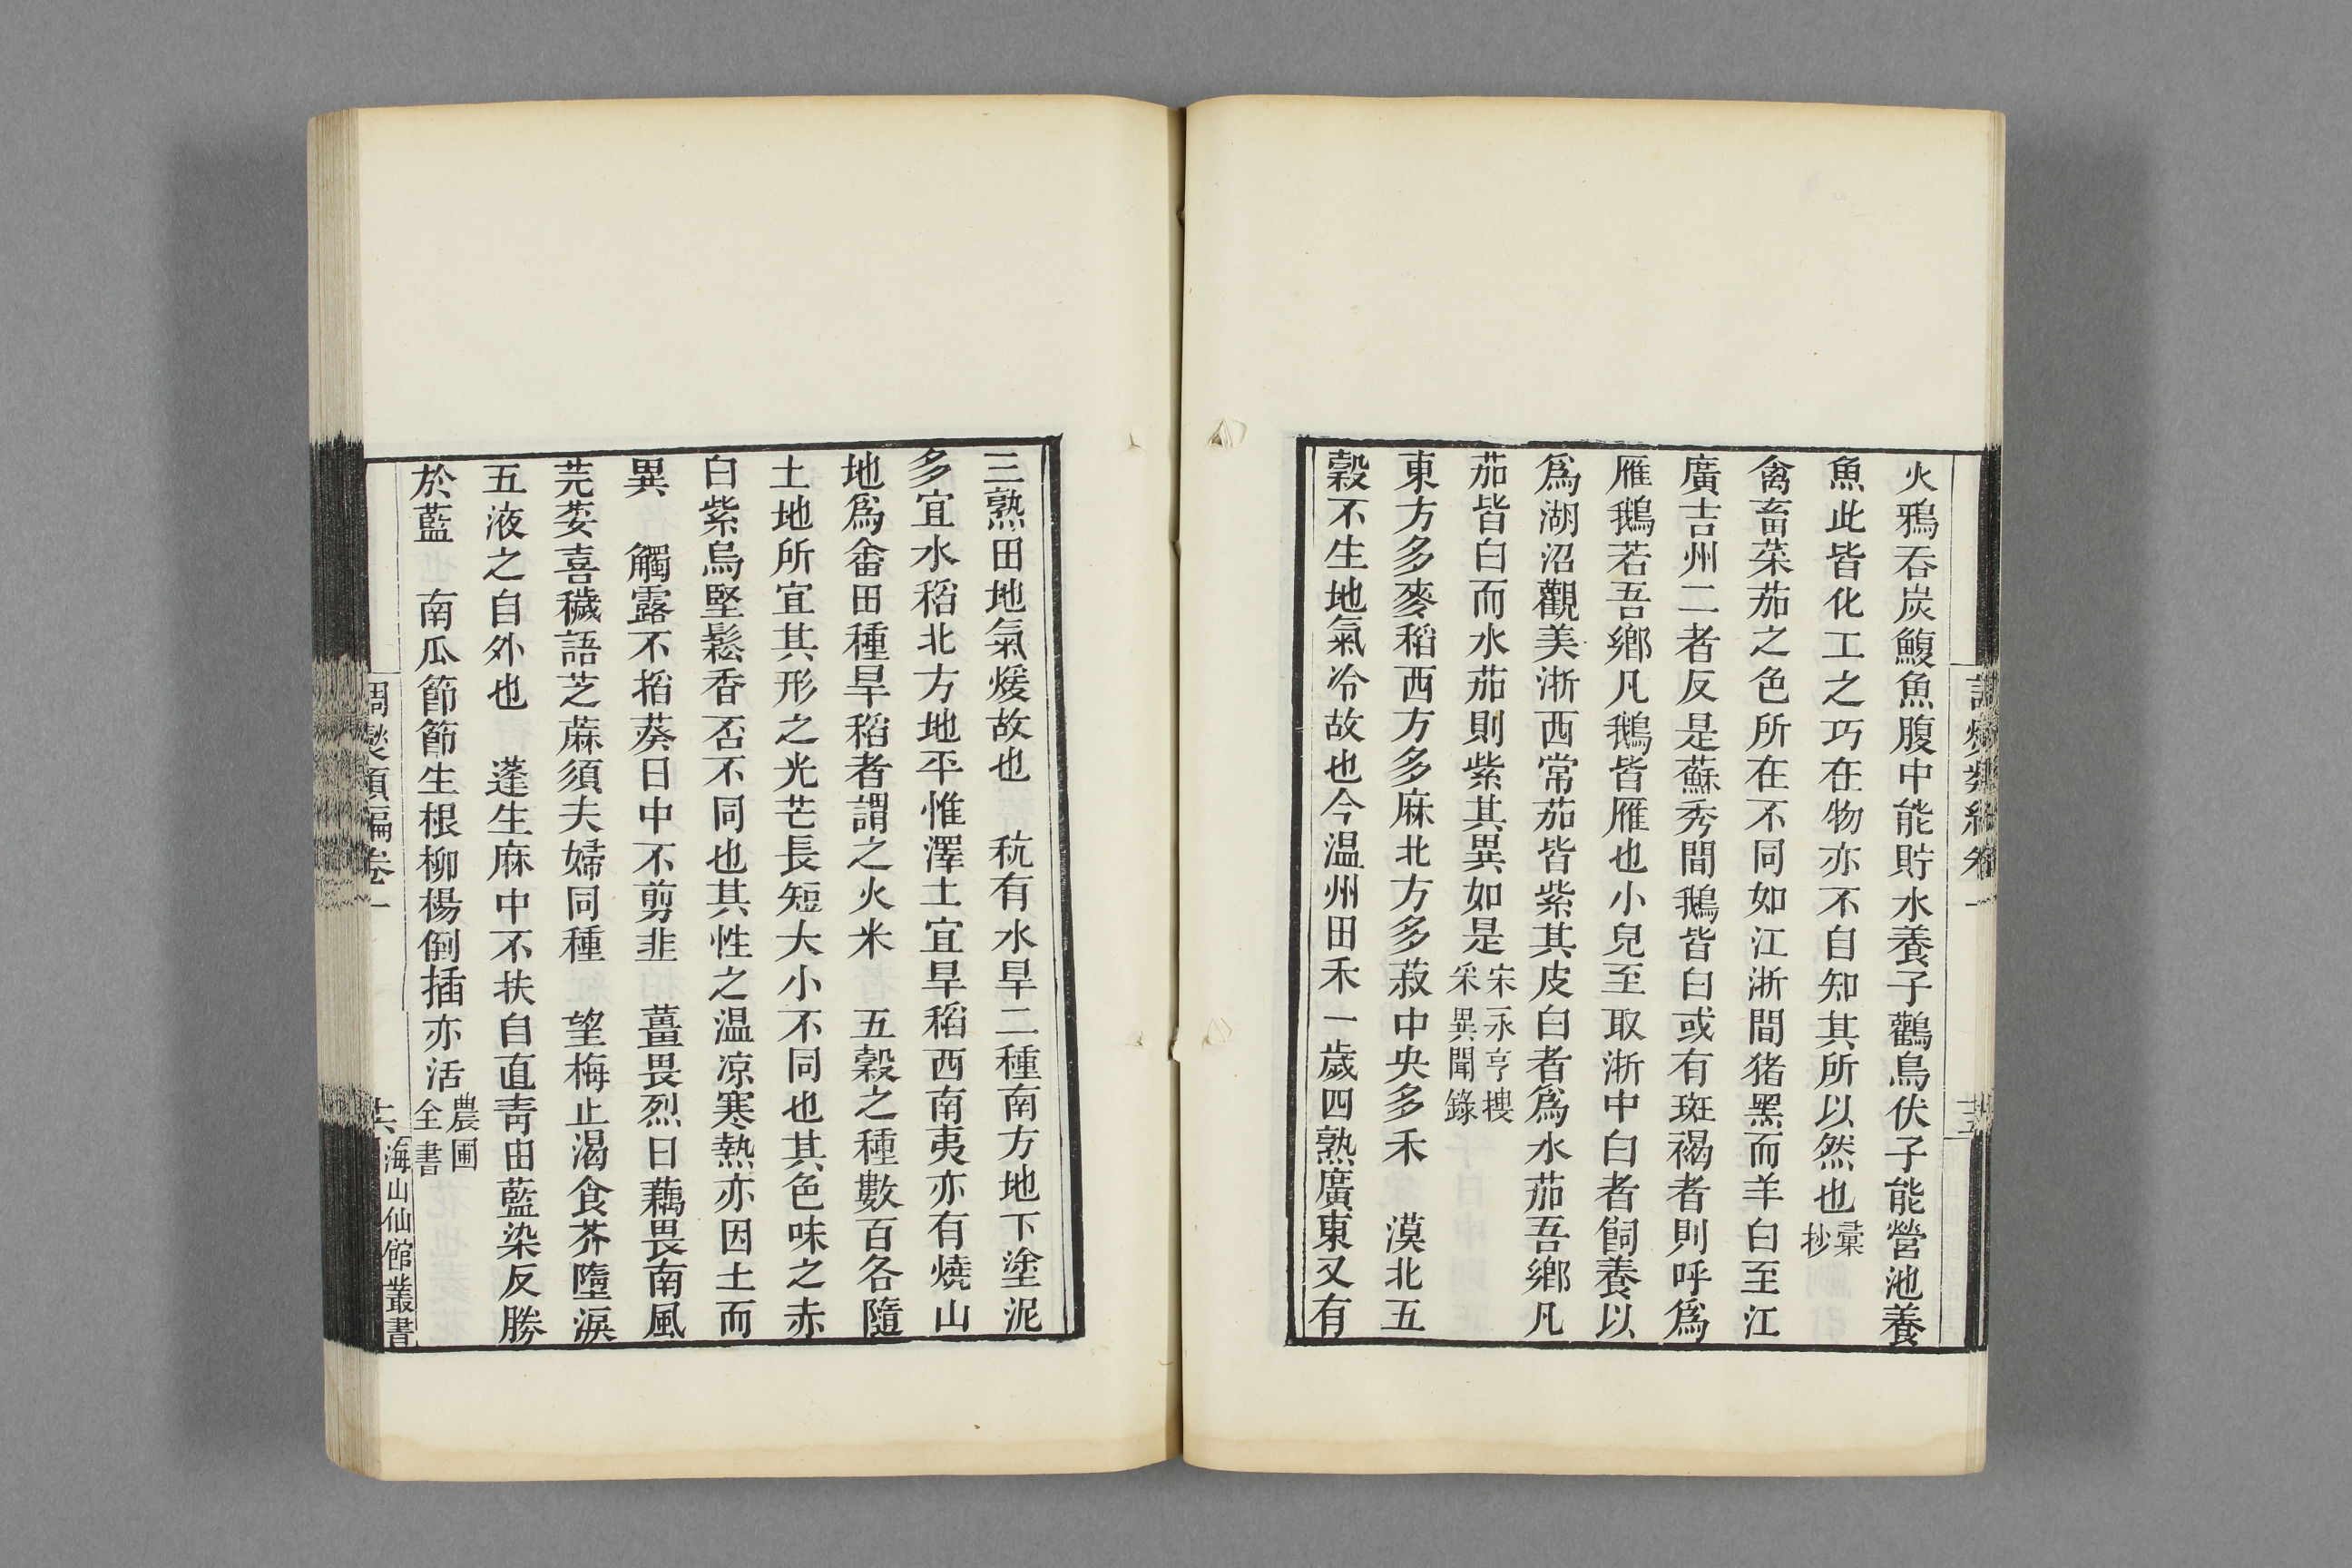 火鴉吞炭鰒魚腹中能貯水養子鸛鳥伏子能營池養
魚此皆化工之巧在物亦不自知其所以然也彙抄
禽畜菜茄之色所在不同如江浙間猪黑而羊白至江
廣吉州二者反是蘇秀間鵝皆白或有斑褐者則呼爲
雁鵝若吾鄉凡鵝皆雁也小兒至取浙中白者飼養以
爲湖沼觀美浙西常茄皆紫其皮白者爲水茄吾鄉凡
茄皆白而水茄則紫其異如是宋永亨搜采異聞錄
東方多麥稻西方多麻北方多菽中央多禾　漠北五
穀不生地氣冷故也今温州田禾一歲四熟廣東又有
三熟田地氣煖故也　秔有水旱二種南方地下塗泥
多宜水稻北方地平惟澤土宜旱稻西南夷亦有燒山
地爲畬田種旱稻者謂之火米　五穀之種數百各隨
土地所宜其形之光芒長短大小不同也其色味之赤
白紫烏堅鬆香否不同也其性之温凉寒熱亦因土而
異　觸露不掐葵日中不剪韭　薑畏烈日藕畏南風
芫荽喜穢語芝蔴須夫婦同種　望梅止渴食芥墮淚
五液之自外也　蓬生麻中不扶自直靑由藍染反勝
於藍　南瓜節節生根柳楊倒插亦活農圃全書
調燮類編卷一
十六
海山仙館叢書